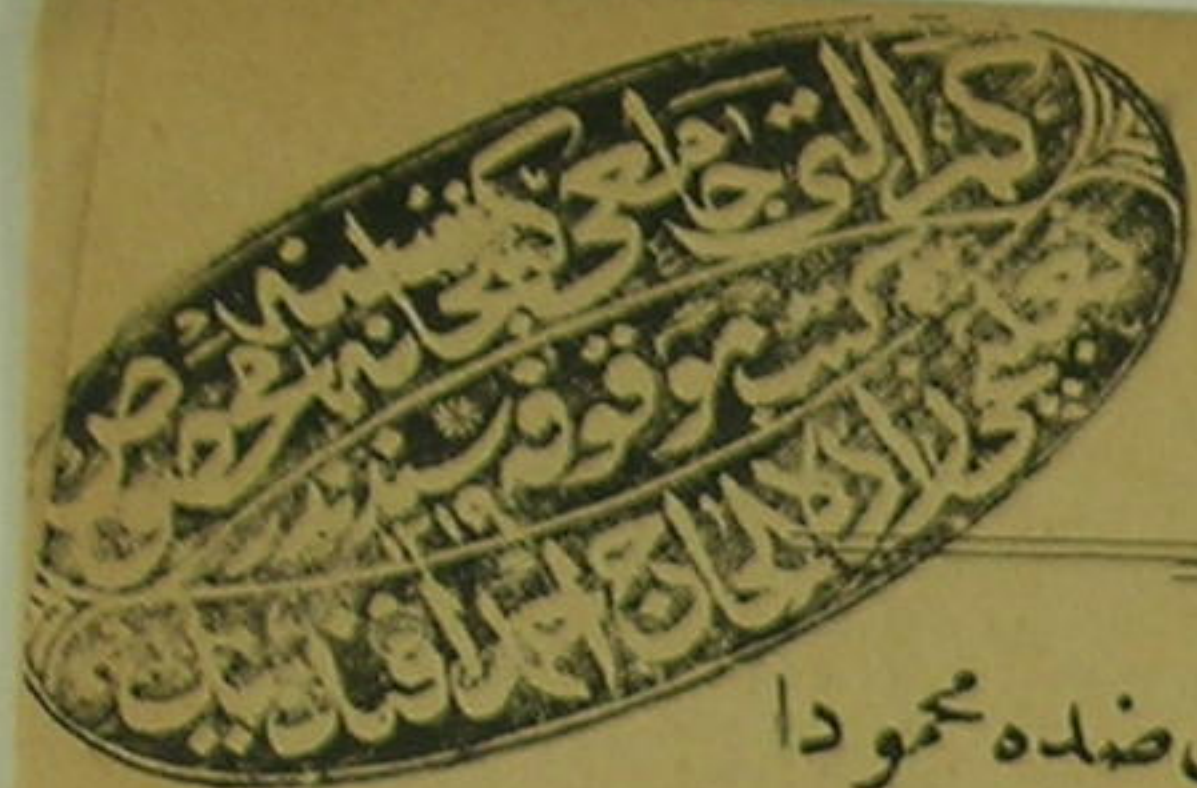 كمر التى جامعى كتبخانه سنه مخصوص
كتب موقوفه سندندر
زاده الحاج احمد افندينك
ضده محمودا